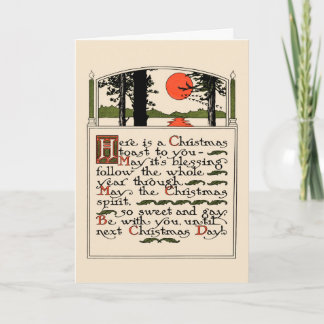 Here is a Christmas
toast to you-
May it's blessing
follow the whole
year through,
May the Christmas
spirit,
so sweet and gay
Be with you, until
next Christmas Day!